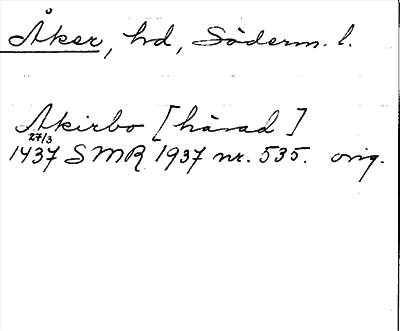 Åker, hd, Söderm. l.
Akirbo [härad]
27/3
1437 SMR 1937 nr. 535. orig.